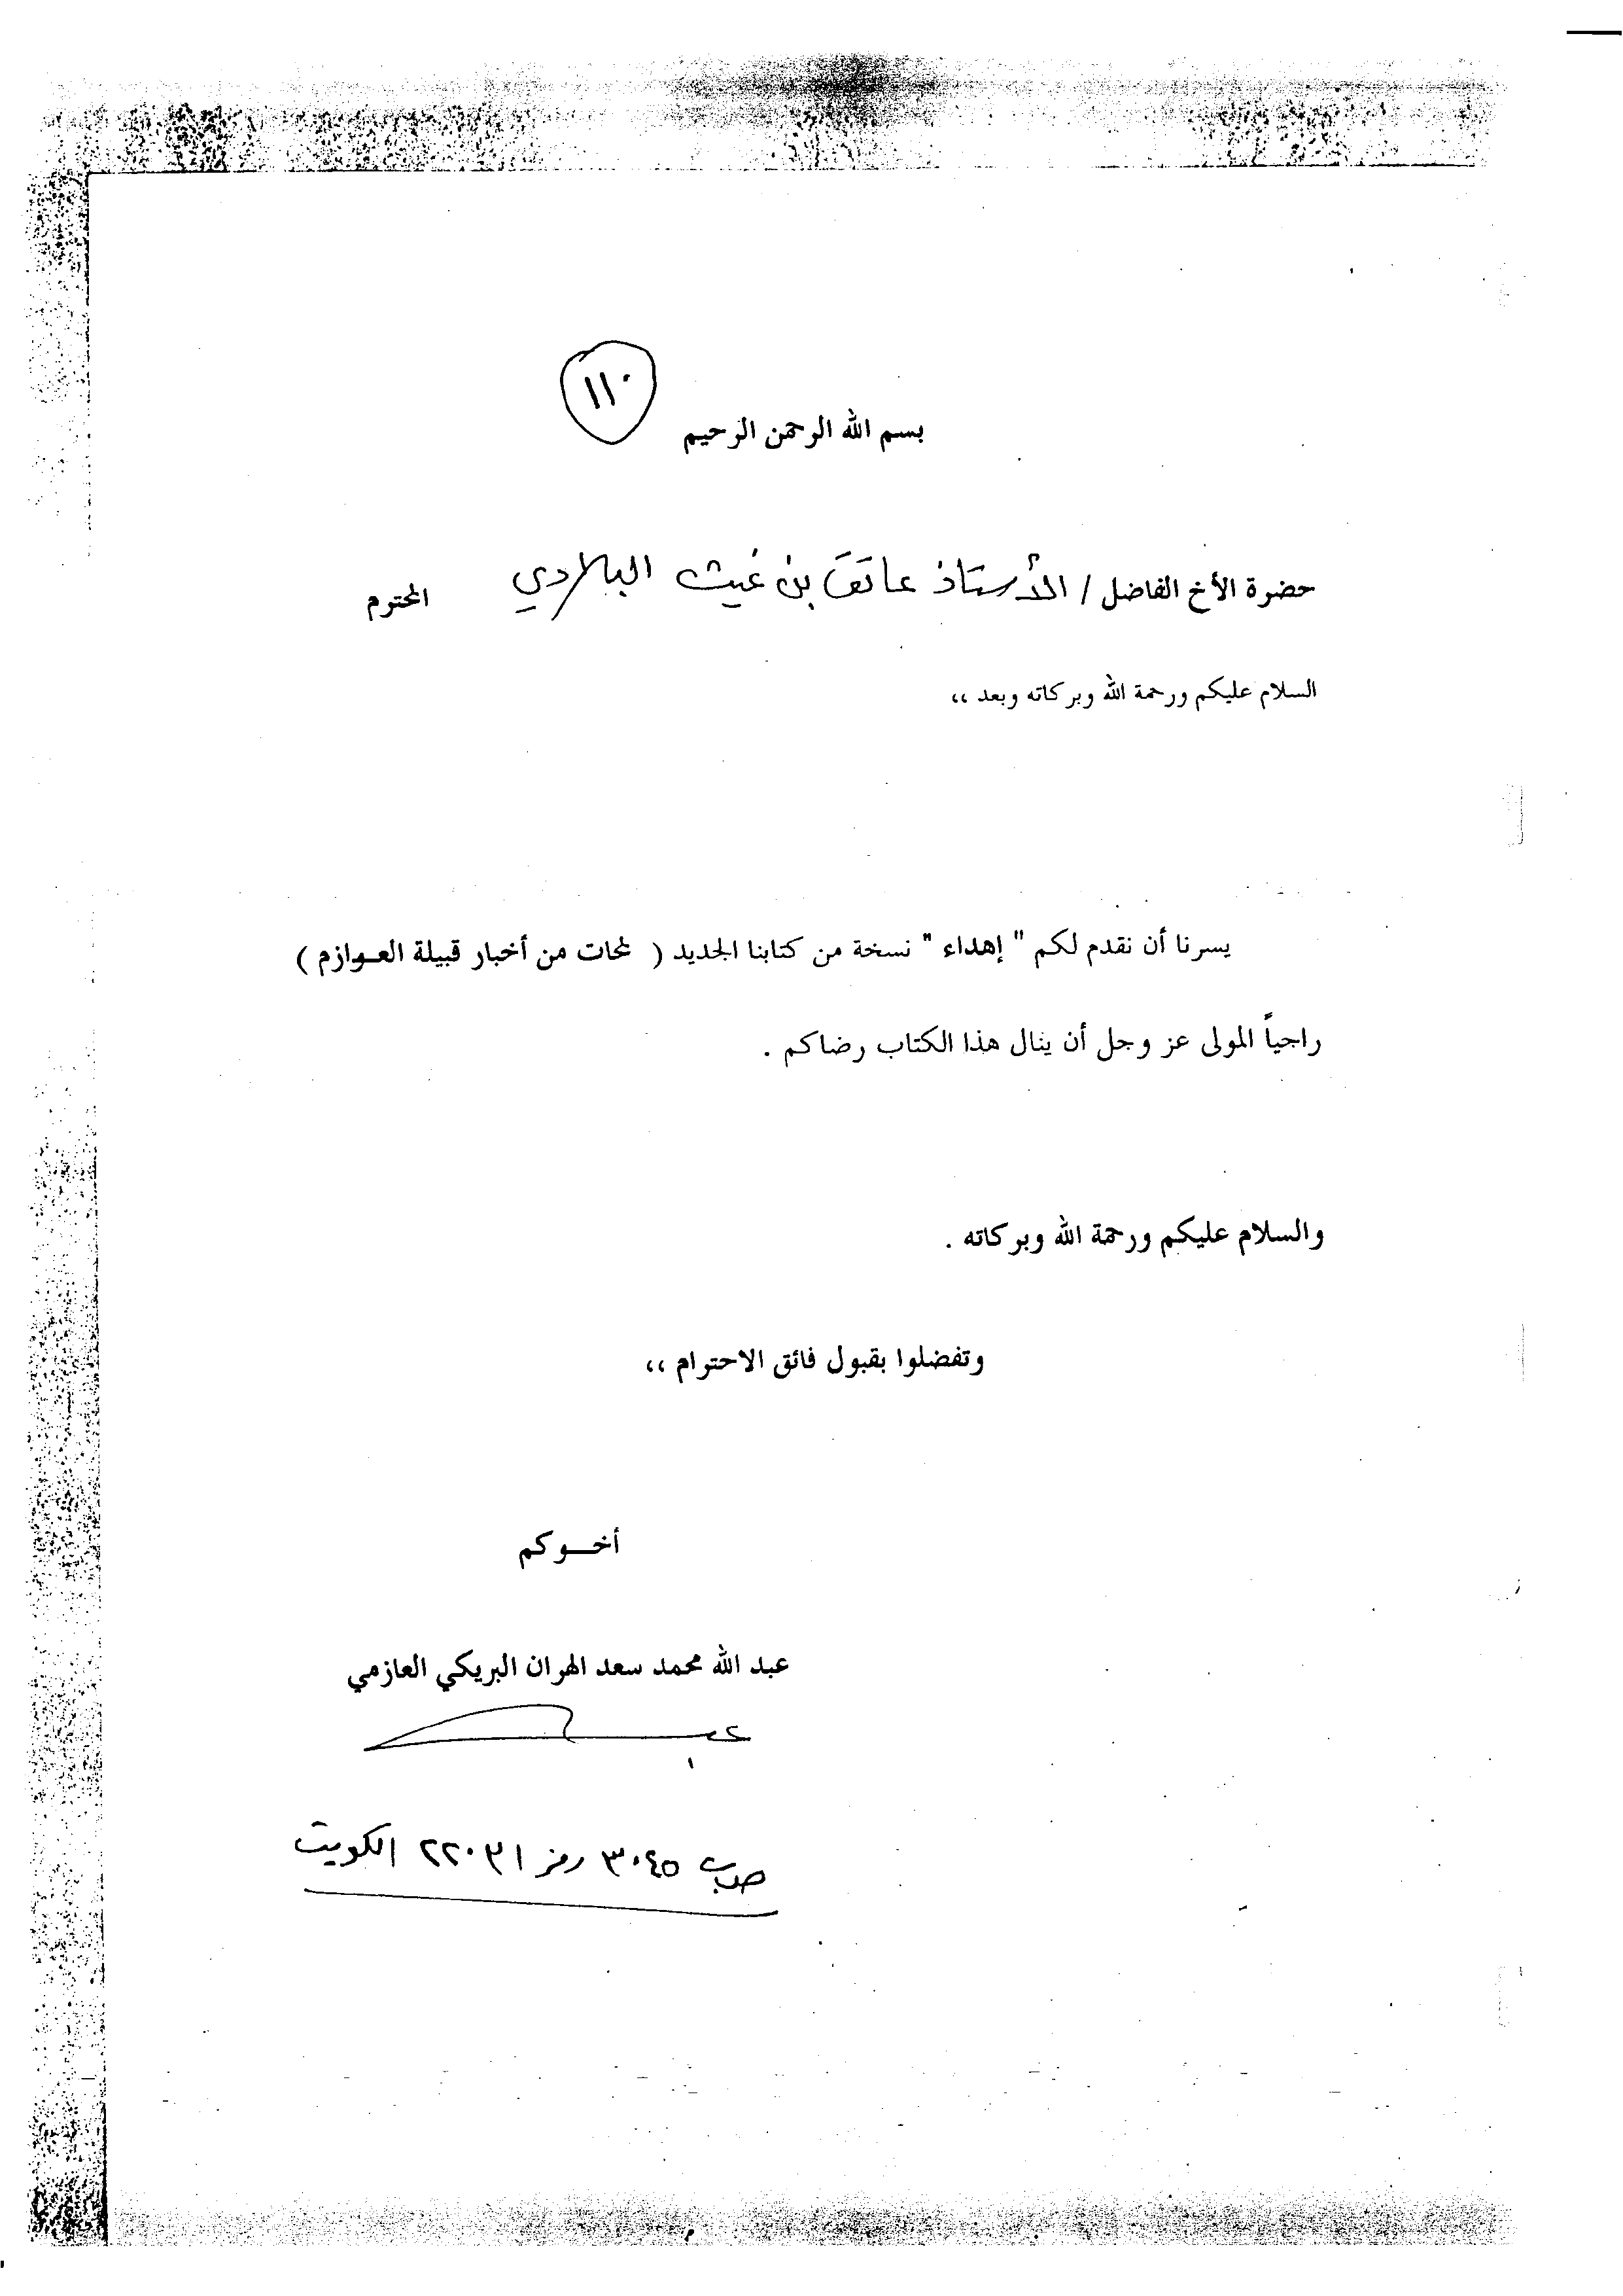 ١١٠
بسم الله الرحمن الرحيم
حضرة الأخ الفاضل / الأستاذ عاتق بن غيث البلادي المحترم
السلام عليكم ورحمة الله وبركاته وبعد ،،
يسرنا أن نقدم لكم " إهداء " نسخة من كتابنا الجديد ( لمحات من أخبار قبيلة العـوازم )
راجياً المولى عز وجل أن ينال هذا الكتاب رضاكم .
والسلام عليكم ورحمة الله وبركاته .
وتفضلوا بقبول فائق الاحترام ،،
أخــوكم
عبد الله محمد سعد الهران البريكي العازمي
ص.ب ٣٠٤٥ رمز ٢٢٠٣١ الكويت